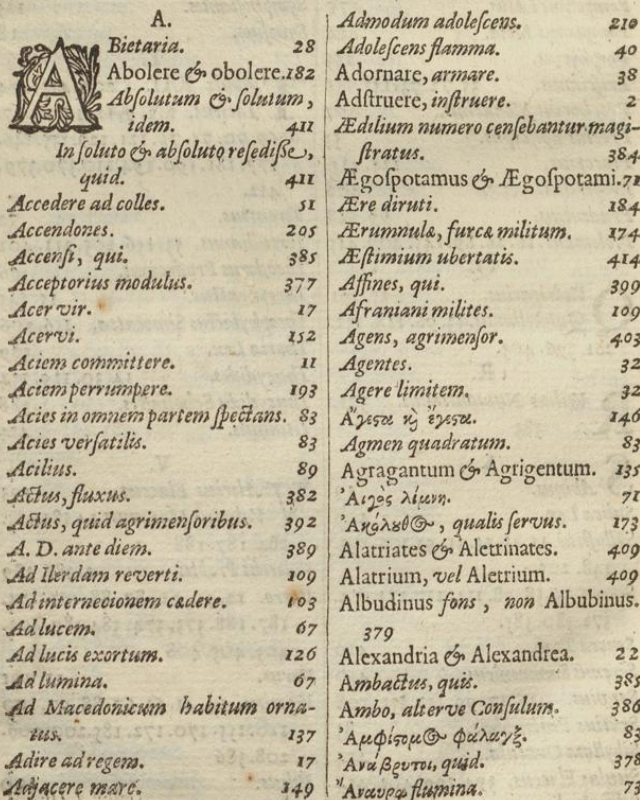 A.
ABietaria. 28
Abolere & obolere. 182
Absolutum & solutum,
idem. 411
In soluto & absoluto resedisse,
quid. 411
Accedere ad colles. 51
Accendones. 205
Accensi, qui. 385
Acceptorius modulus. 377
Acer vir. 17
Acervi. 152
Aciem committere. 11
Aciem perrumpere. 193
Acies in omnem partem spectans. 83
Acies versatilis. 83
Acilius. 89
Actus, fluxus. 382
Actus, quid agrimensoribus. 392
A. D. ante diem. 389
Ad Ilerdam reverti. 109
Ad internecionem cædere. 103
Ad lucem. 67
Ad lucis exortum. 126
Ad lumina. 67
Ad Macedonicum habitum orna-
tus. 137
Adire ad regem. 17
Adjacere mare. 149
Admodum adolescens. 210
Adolescens flamma. 40
Adornare, armare. 38
Adstruere, instruere. 2
Ædilium numero censebantur magi-
stratus. 384
Ægospotamus & Ægospotami. 71
Ære diruti. 184
Ærumnulæ, furcæ militum. 174
Æstimium ubertatis. 414
Affines, qui. 399
Afraniani milites. 109
Agens, agrimensor. 403
Agentes. 32
Agere limitem. 32
Ἄγεσα καὶ ἔγεσα. 146
Agmen quadratum. 83
Agragantum & Agrigentum. 135
Ἀιγὸς λίμνη. 71
Ἀκόλουθος, qualis servus. 173
Alatriates & Aletrinates. 409
Alatrium, vel Aletrium. 409
Albudinus fons, non Albubinus.
379
Alexandria & Alexandrea. 22
Ambactus, quis. 385
Ambo, alterve Consulum. 386
Ἀμφίστομος φάλαγξ. 83
Ἀναβρυτοι, quid. 378
Ἄναυρα flumina. 73